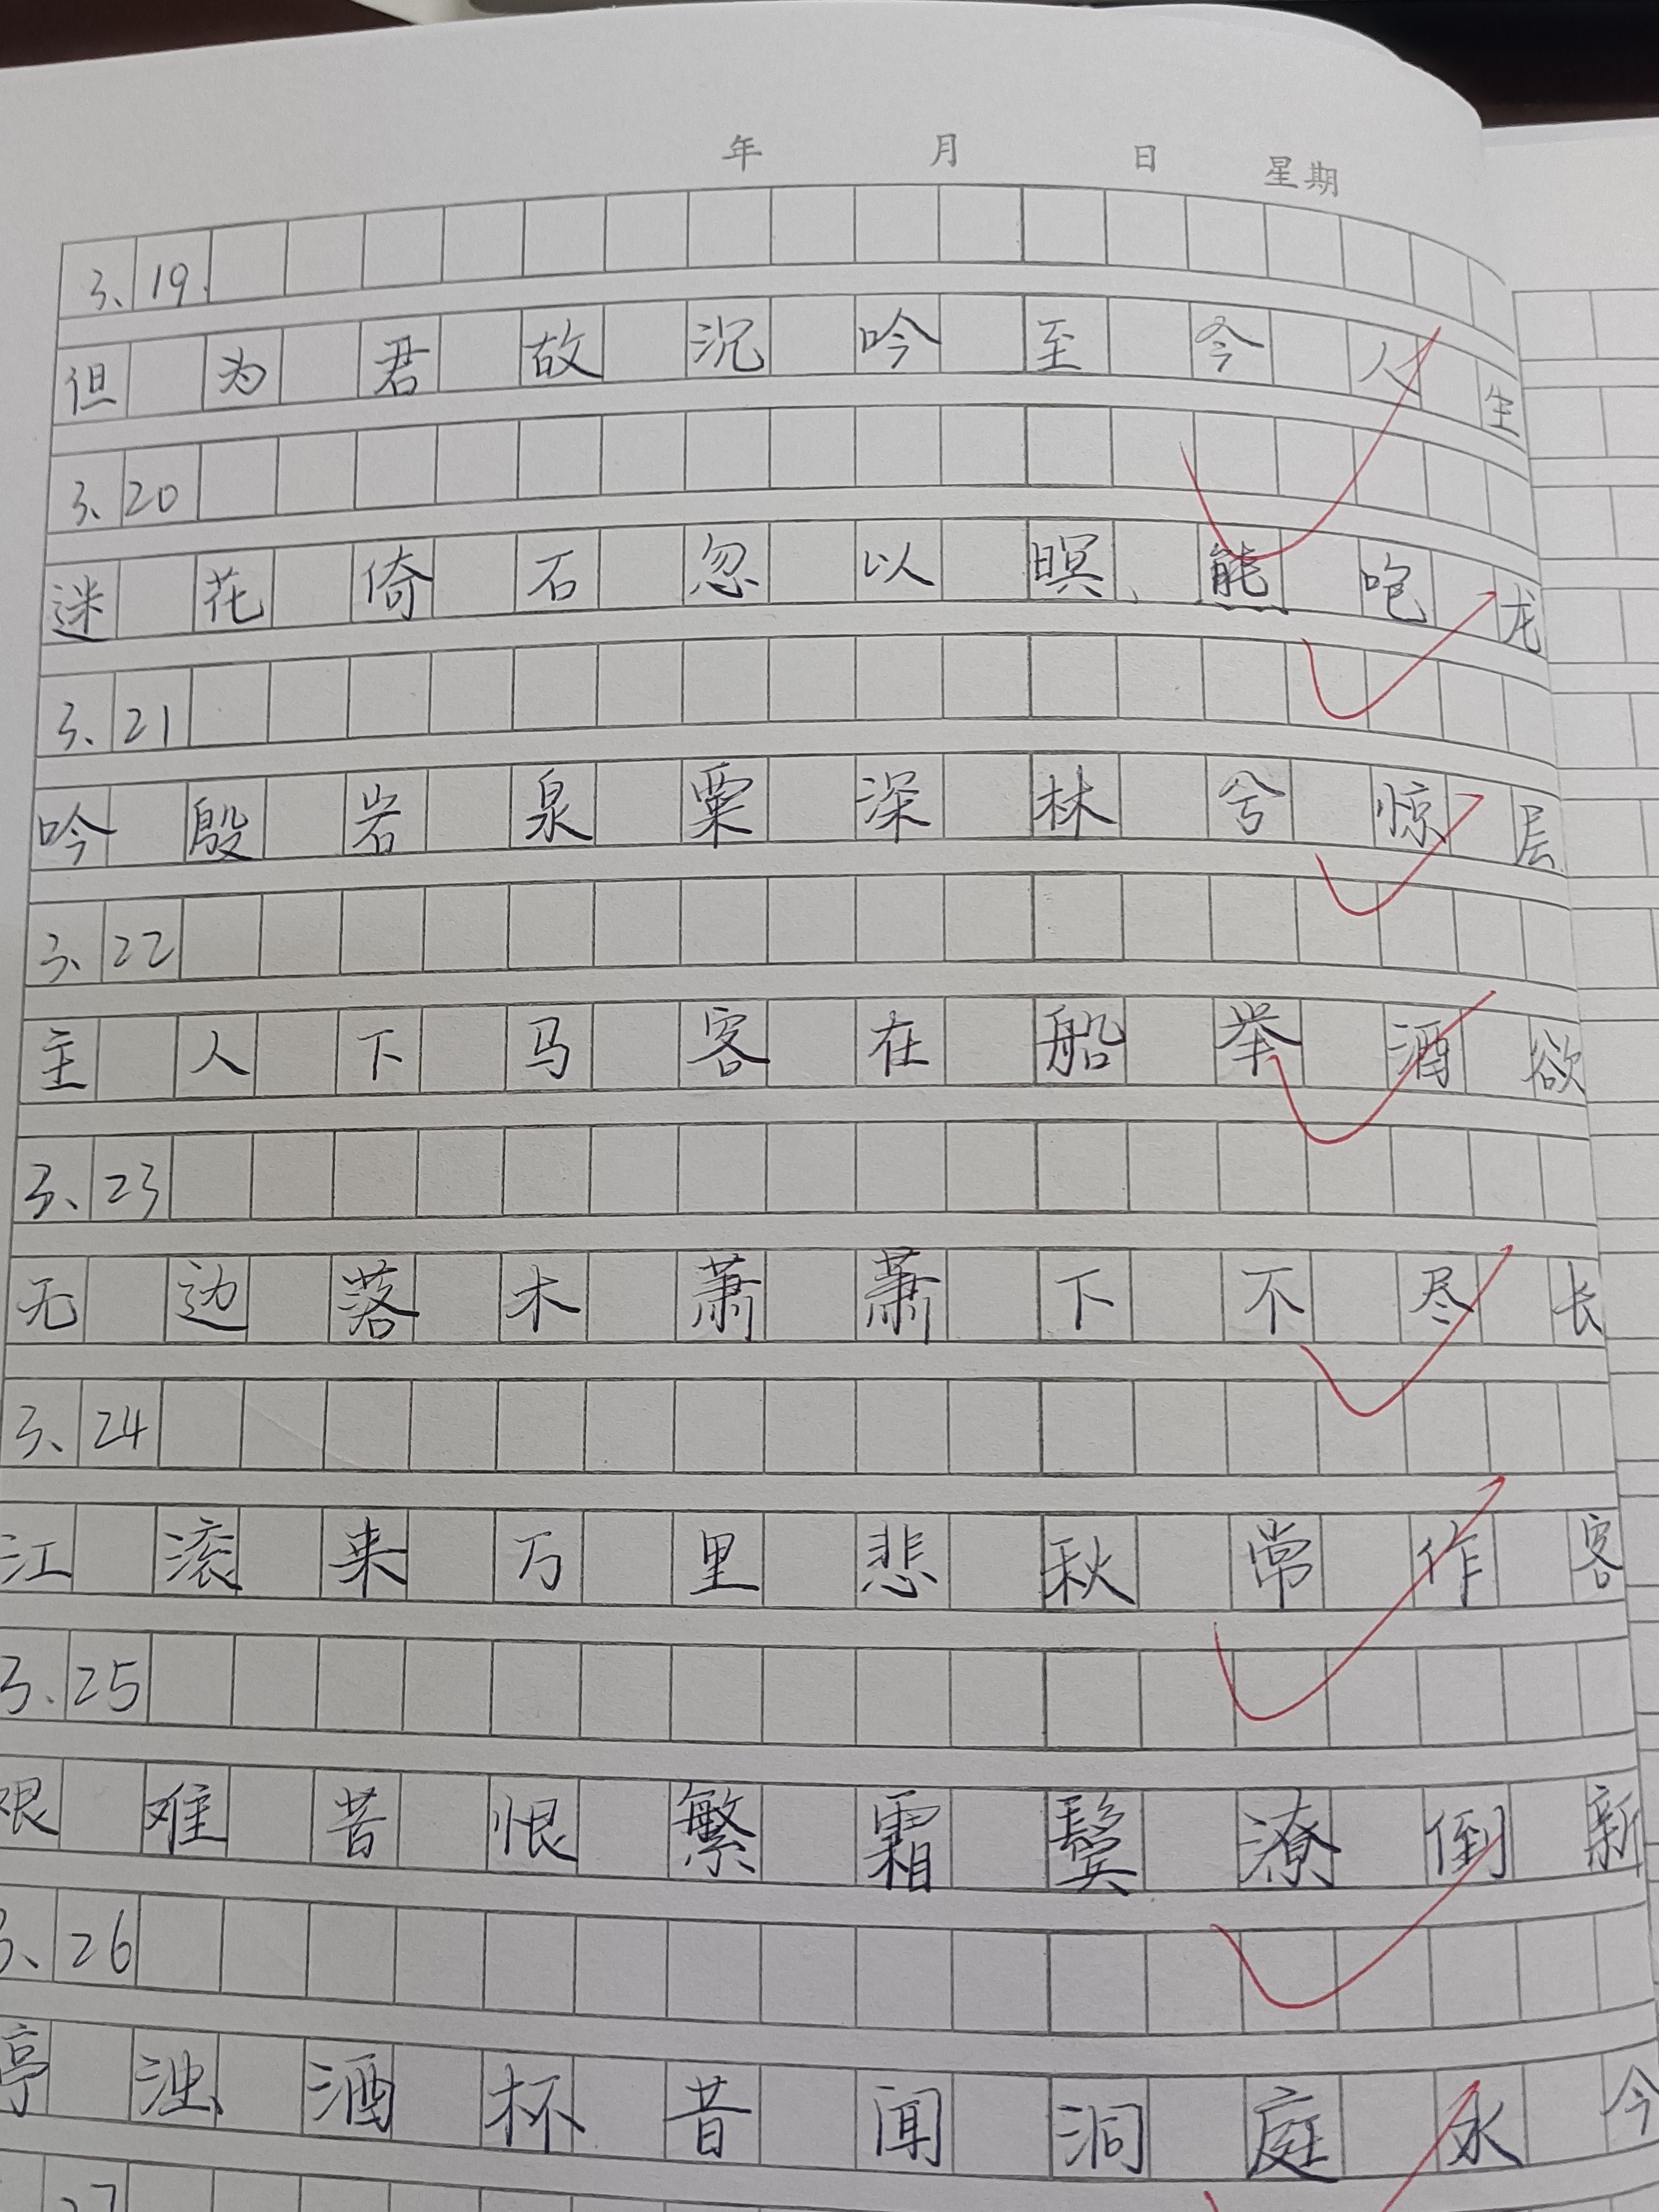 年 月 日 星期
3、19.
但为君故沉吟至今人生
3、20
迷花倚石忽以暝、熊咆龙
3、21
吟殷岩泉栗深林兮惊层
3、22
主人下马客在船举酒欲
3、23
无边落木萧萧下不尽长
3、24
江滚来万里悲秋常作客
3、25
艰难苦恨繁霜鬓潦倒新
3、26
亭浊酒杯昔闻洞庭水今
27